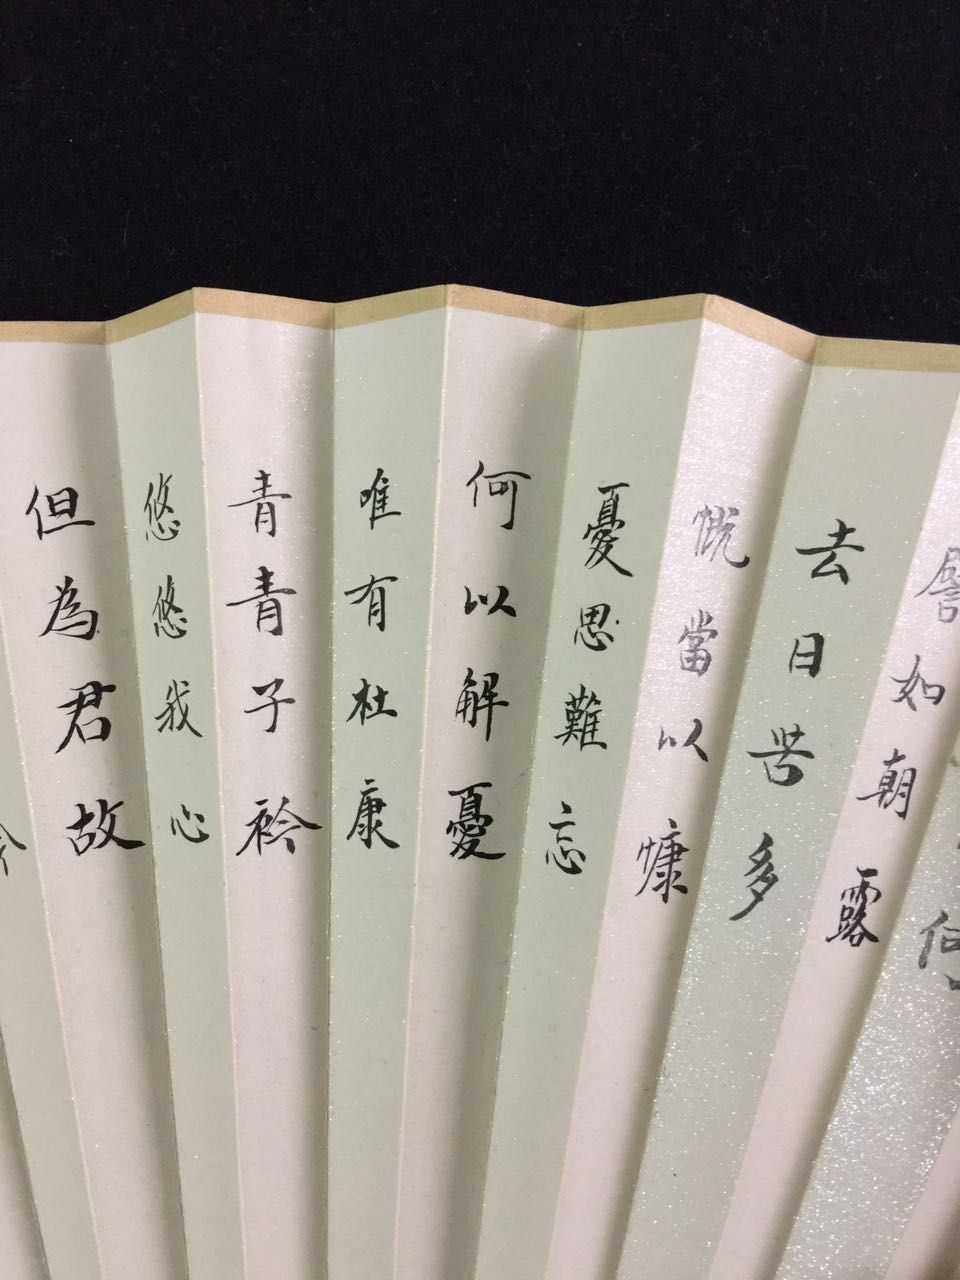 何
譬如朝露
去日苦多
慨當以慷
憂思難忘
何以解憂
唯有杜康
青青子衿
悠悠我心
但為君故